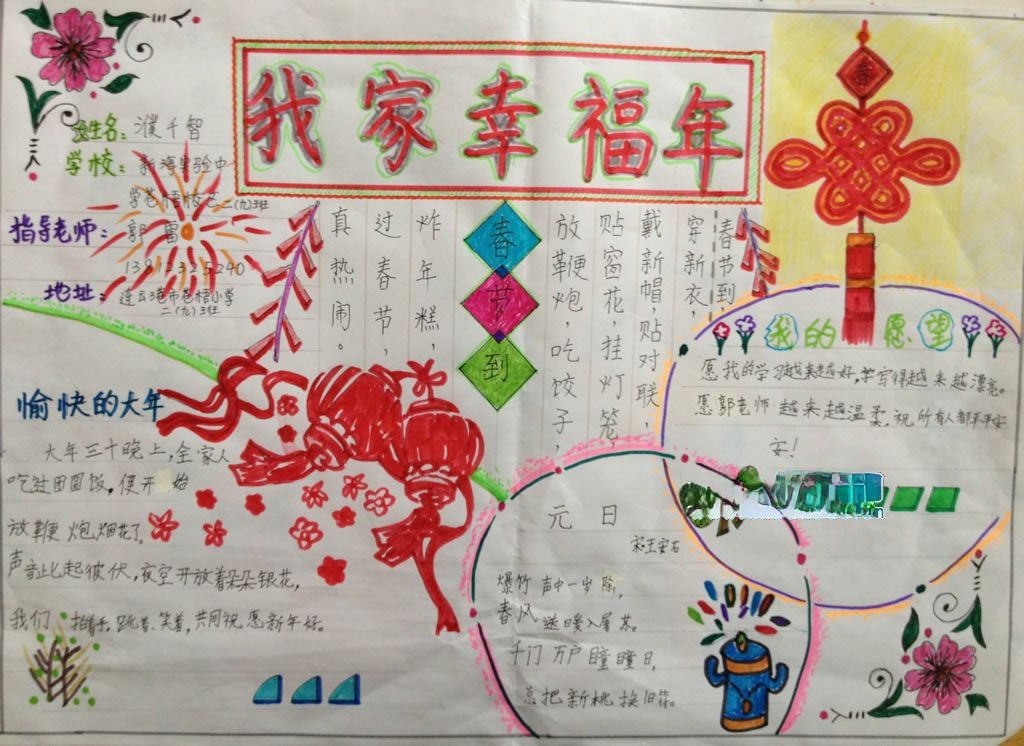 我家幸福年
姓名：濮千智
学校：新海实验中
学苍梧校区二（九）班
指导老师：郭雷
13812325240
地址：连云港市苍梧小学
二（九）班
春
春节到，
穿新衣，
戴新帽，贴对联，
贴窗花，挂灯笼，
放鞭炮，吃饺子，
春节到
炸年糕，
过春节，
真热闹。
我的愿望
愿我的学习越来越好，字写得越来越漂亮。
愿郭老师越来越温柔，祝所有人都平平安
安！
愉快的大年
大年三十晚上，全家人
吃过团圆饭，便开始
放鞭炮烟花了。
声音此起彼伏，夜空开放着朵朵银花，
我们拍着手，跳着、笑着，共同祝愿新年好。
元日
宋王安石
爆竹声中一岁除，
春风送暖入屠苏。
千门万户瞳瞳日，
总把新桃换旧符。